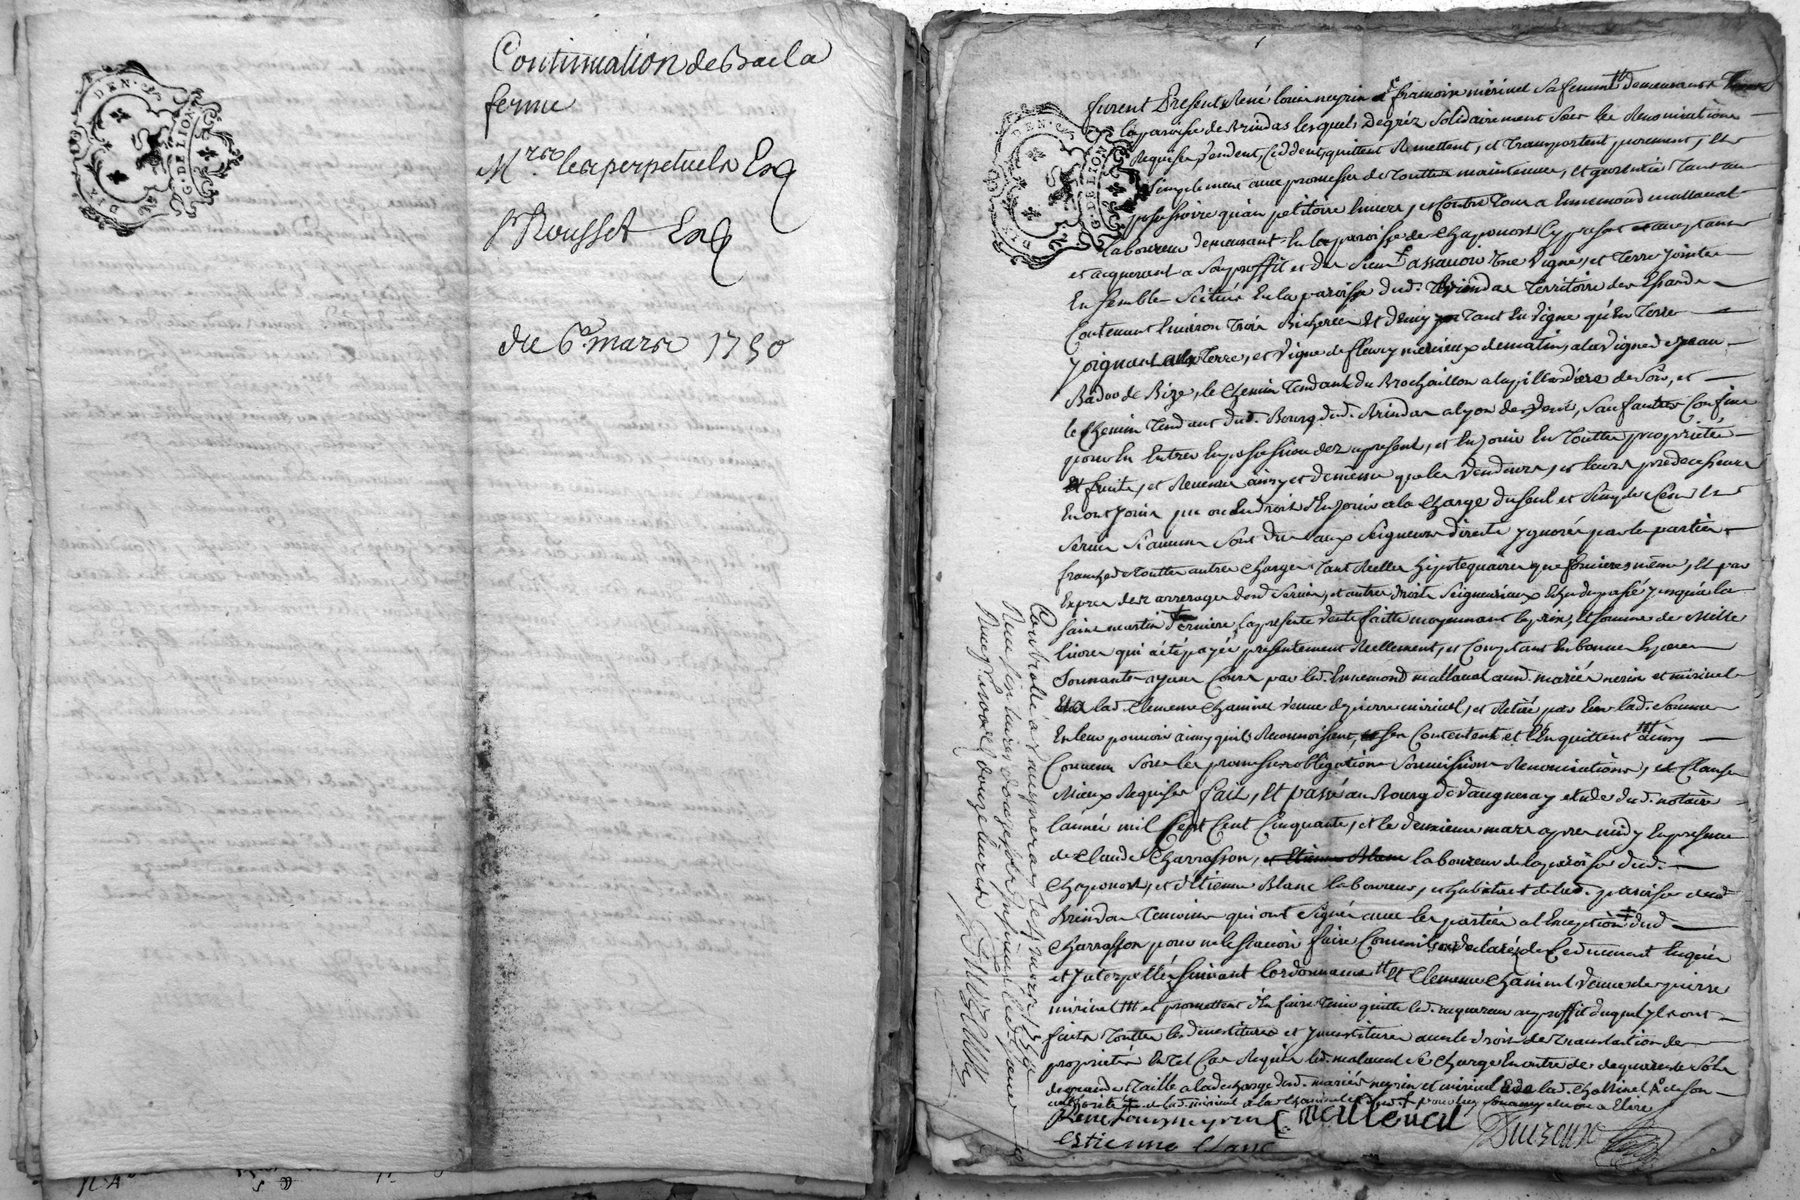 Continuation de Bail a
ferme
Mrs. les perpetuels Esq
Sr Rousset Esq
du 6e. mars 1750
DEN.
G. DE LION
furent Presents René louis neyrin et françoise miriuel sa femme demeurants
la paroisse de Brindas lesquels De gréz solidairement sous les Renonciations
Requises vendent, Ceddent, quittent Remettent, et transportent purement, et
simplement avec promesse de toutte maintenue, et garentie tant au
possessoire qu'au petitoire Envers, et Contre tous a Ennemond mallaval
laboureur demeurant En la paroisse de Chaponost Cy present et acceptant
et acquerant a son proffit et des siens assauoir Une Vigne, et Terre jointe
Ensemble Scitués En la paroisse dud. Brindas Territoire des Essards
Contenant Environ trois Bicherées Et demy tant En Vigne qu'En terre
joignant la terre, et Vigne de fleury merieux de matin, a la Vigne de jean
Badoo de Bize, le Chemin tendant du Brochaillon a la pillardiere de soir, et
le Chemin tendant dud. Bourg dud. Brindas a lyon de vent, sauf autres Confins
pour En Entrer En possession dez a present, et En jouir En toutte proprieté
Et fruits, et Revenus ainsy et de mesme que les Vendeurs, et leurs predecesseurs
En ont joui, pu ou du Droit d'En jouir a la Charge du seul et simple Cens, et
servis si aucuns sont dus aux seigneurs directs ygnorés par les parties
franche de toutte autre Charge tant Reelle hipotequaire que foncieres même, Et par
Exprez des arrerages desd. servis, et autres droits seigneuriaux Echu du passé jusqu'a la
saint martin derniere, la presente Vente faitte moyennant le prix, Et somme de Mille
livres qui a été payée presentement Reellement, et Comptant En bonnes Especes
sonnantes ayant Cours par led. Ennemond mallaval aud. mariés neirin et miriuel
lad. Clemence Chaminet Veuve de pierre miriuel, et Retiré par Eux lad. somme
En leur pouvoir ainsy qu'ils Reconnoissent, sen Contentent et l'En quittent ainsy
Convenu sous les promesses obligations soumissions Renonciations, et Clauses
Mieux Requises fait, Et passé au Bourg de Vaugneray etude dud. notaire
l'année mil sept Cent Cinquante, et le deuxieme mars apres midy En presence
de Claude Charrasson, et Etienne Blanc laboureur de la paroisse dud.
Chaponost, et d'Etienne Blanc laboureur, et habitant de lad. paroisse dud
Brindas Temoins qui ont signé avec les parties a l'Exception dud
Charrasson pour ne le scavoir faire Comme il a declaré de Ce duement Enquis
et jnterpellés suivant l'ordonnance et Clemence Chaminet Veuve de pierre
miriuel et promettent d'En faire tenir quitte led. acquereur au proffit duquel yls ont
faits touttes les devestitures et ynvestitures avec le droit de translation de
proprieté En tel Cas Requis led. malaval se Charge En outre de
Taille a la decharge dud. mariés neyrin et miriuel lad. Chaminet de son
René louis neyrin E. malleval
Estienne blanc
Controllé a Vaugneray le mars 1750
Reçu six livres douze sols